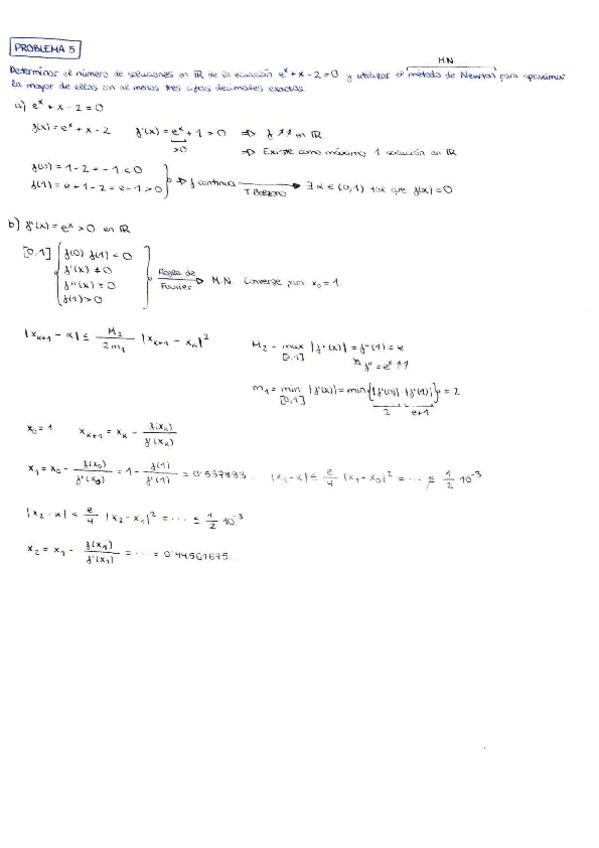 PROBLEMA 5
M.N.
Determinar el número de soluciones en ℝ de la ecuación e^x + x - 2 = 0 y utilizar el método de Newton para aproximar
la mayor de ellas con al menos tres cifras decimales exactas.
a) e^x + x - 2 = 0
f(x) = e^x + x - 2    f'(x) = e^x + 1 > 0 ⇒ f ↗↗ en ℝ
>0
⇒ Existe como máximo 1 solución en ℝ
f(0) = 1 - 2 = -1 < 0
f(1) = e + 1 - 2 = e - 1 > 0 } ⇒ f continua → T Bolzano ∃ α ∈ (0,1) tal que f(α) = 0
b) f''(x) = e^x > 0 en ℝ
[0,1] { f(0) f(1) < 0
f'(x) ≠ 0
f''(x) ≥ 0
f(1) > 0 } Regla de Fourier → M.N. Converge para x₀ = 1
|x_{k+1} - α| ≤ M₂/2m₁ |x_{k+1} - x_k|²
M₂ = max |f''(x)| = f''(1) = e
[0,1]
f'' = e^x ↑↑
m₁ = min |f'(x)| = min{|f'(0)|, |f'(1)|} = 2
[0,1]    2    e+1
x₀ = 1    x_{k+1} = x_k - f(x_k)/f'(x_k)
x₁ = x₀ - f(x₀)/f'(x₀) = 1 - f(1)/f'(1) = 0'537883.    |x₁ - α| ≤ e/4 |x₁ - x₀|² = ··· ≰ 1/2 10⁻³
|x₂ - α| < e/4 |x₂ - x₁|² = ··· ≤ 1/2 10⁻³
x₂ = x₁ - f(x₁)/f'(x₁) = ··· = 0'44561675..